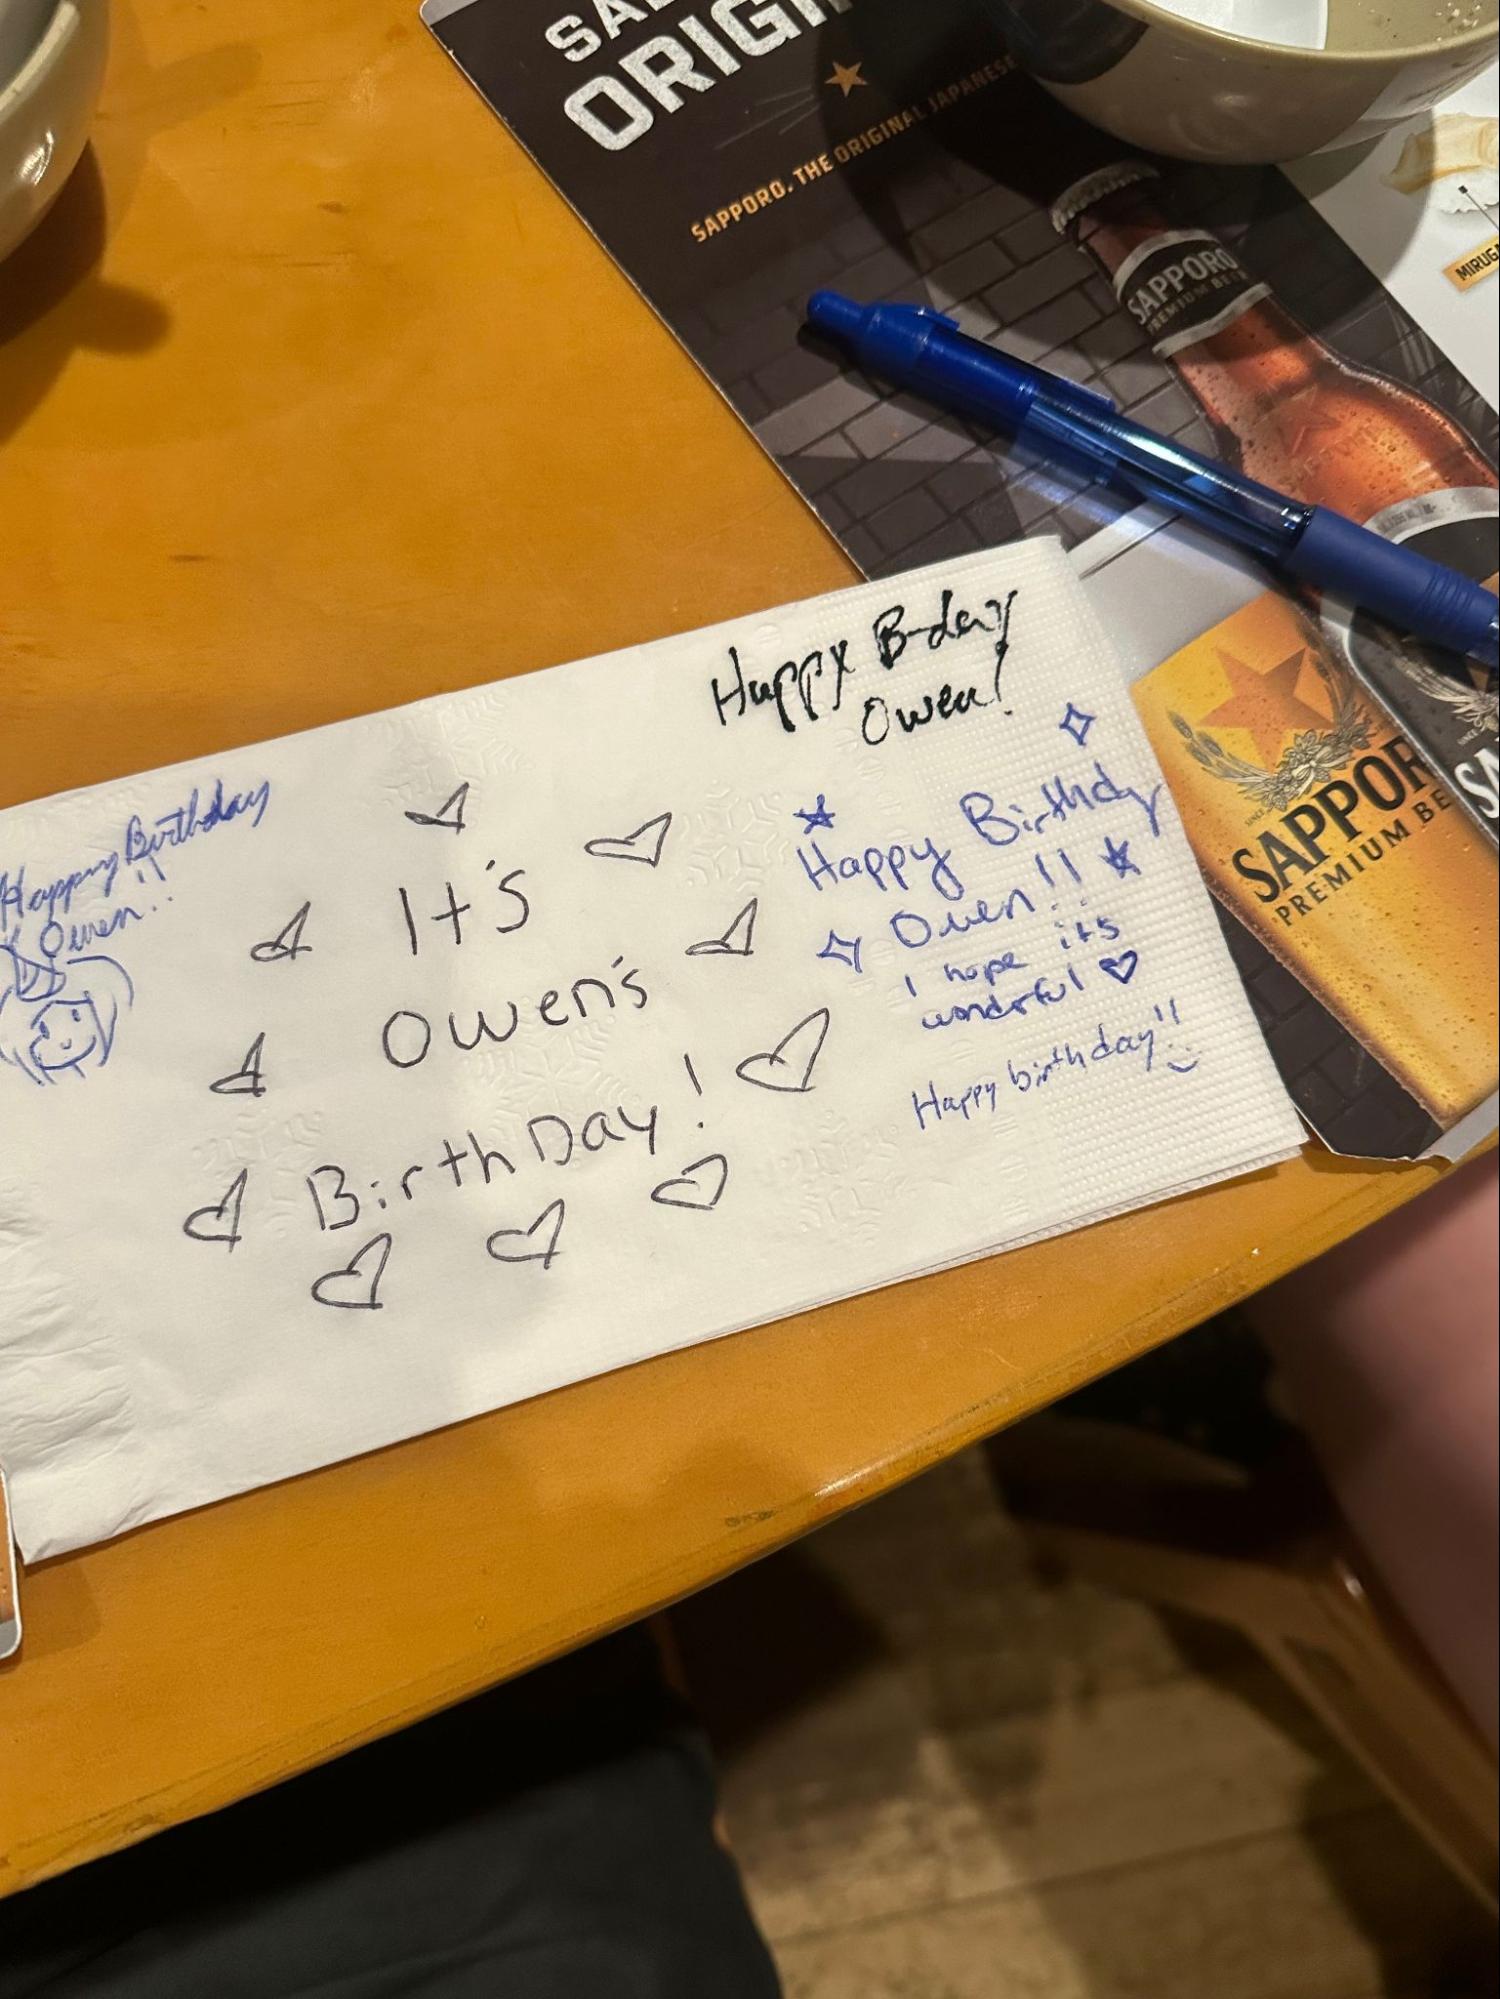 SAPPORO, THE ORIGINAL JAPANESE
SAPPORO
PREMIUM BEER
MIRUGA
Happy B-day
Owen!
Happy Birthday
Owen!!
It's
Owen's
BirthDay!
Happy Birthday
Owen!!
I hope its
wonderful
Happy birthday!!
SINCE
SAPPOR
PREMIUM BE
SINCE